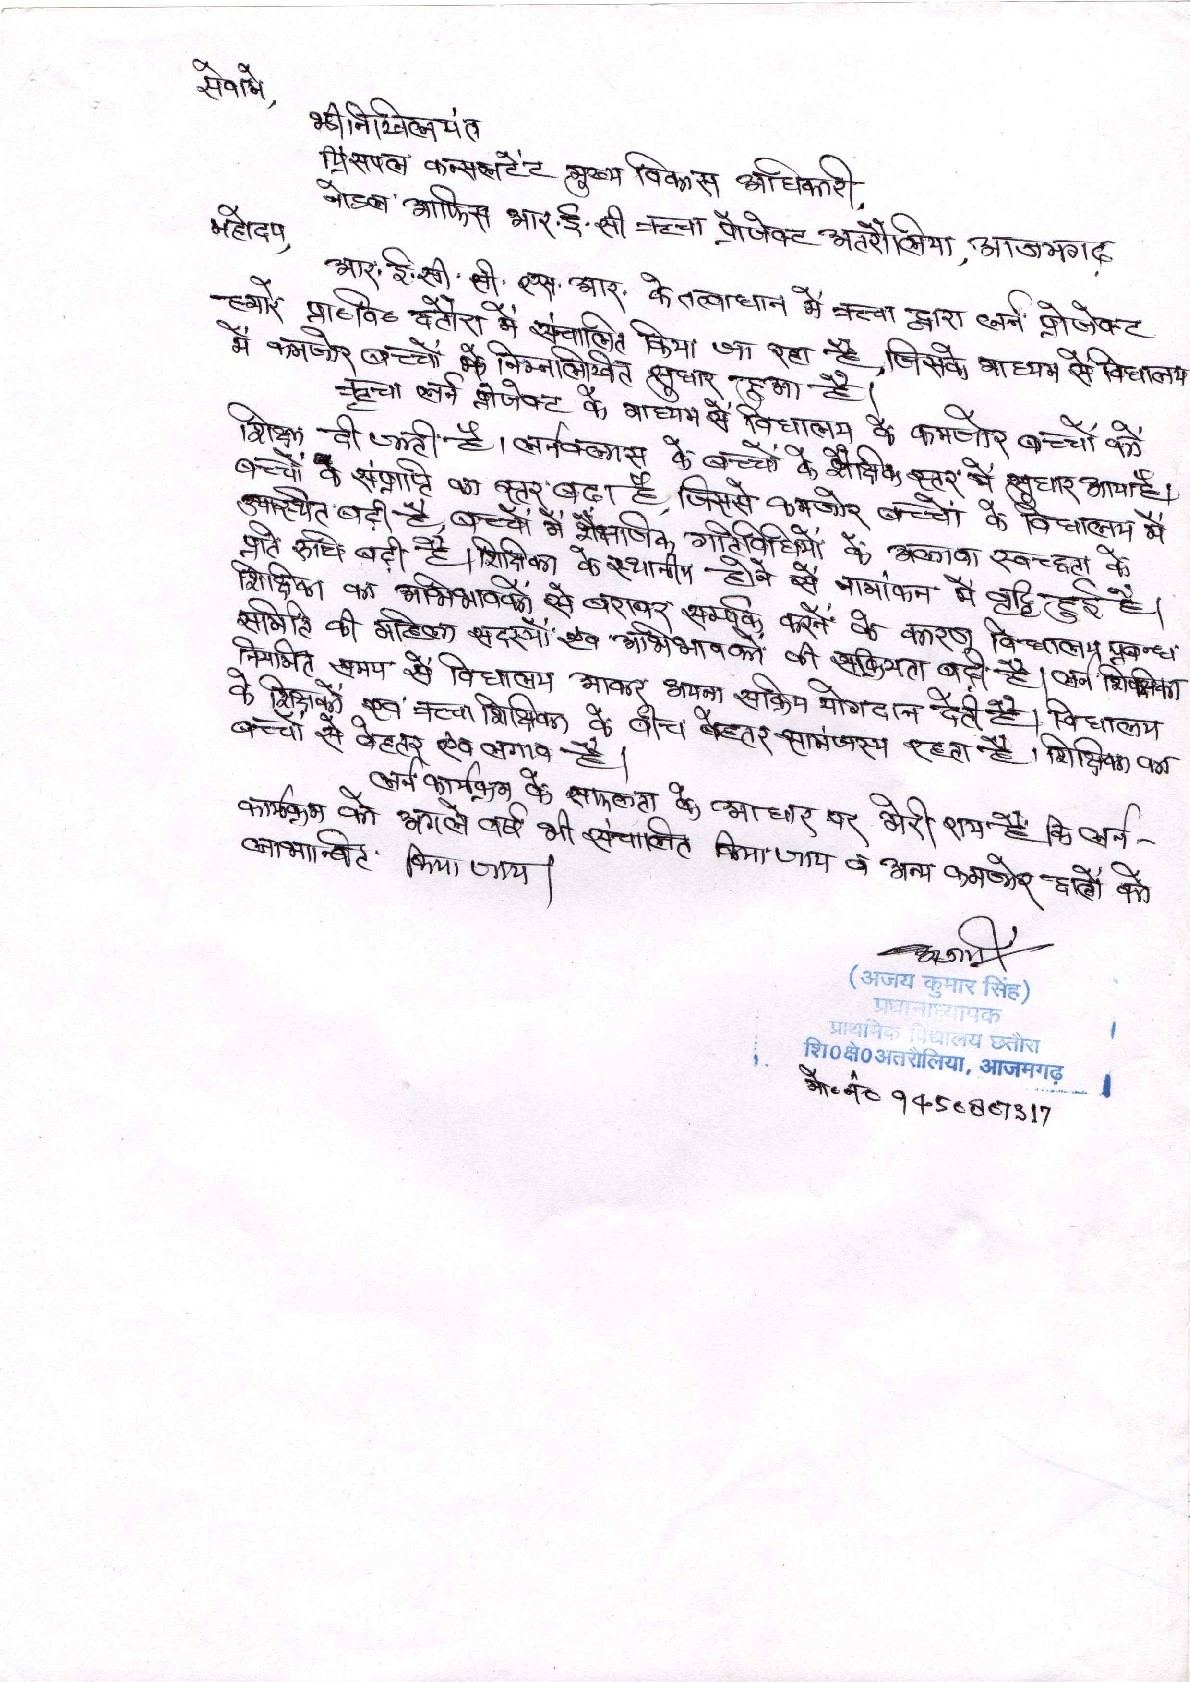 सेवामे,
श्री निखिल पंत
प्रिंसपल कन्सलटेंट मुख्य विकास अधिकारी,
नोडल आफिस आर.ई.सी चच्चा प्रोजेक्ट अतरौलिया, आजमगढ़
महोदय,
आर.ई.सी. सी. एस. आर. के तत्वाधान में चच्चा द्वारा लर्न प्रोजेक्ट
हमारे प्रा०वि० छतौरा में संचालित किया जा रहा है, जिसके माध्यम से विद्यालय
में कमजोर बच्चों में निम्नलिखित सुधार हुआ है।
चच्चा लर्न प्रोजेक्ट के माध्यम से विद्यालय के कमजोर बच्चों को
शिक्षा दी जाती है। लर्नक्लास के बच्चों के शैक्षिक स्तर में सुधार आया है।
बच्चों के संप्राप्ति का स्तर बढ़ा है, जिससे कमजोर बच्चों के विद्यालय में
उपस्थित बढ़ी है, बच्चों में शैक्षणिक गतिविधियों के अलावा स्वच्छता के
प्रति रुचि बढ़ी है। शिक्षिका के स्थानीय होने से नामांकन में वृद्धि हुई है।
शिक्षिका का अभिभावकों से बराबर सम्पर्क करने के कारण विद्यालय प्रबन्ध
समिति की महिला सदस्यों एवं अभिभावकों की सक्रियता बढ़ी है। लर्न शिक्षिका
नियमित समय से विद्यालय आकर अपना सक्रिय योगदान देती है। विद्यालय
के शिक्षकों एवं चच्चा शिक्षिका के बीच बेहतर सामंजस्य रहता है। शिक्षिका का
बच्चों से बेहतर एवं लगाव है।
लर्न कार्यक्रम के सफलता के आधार पर मेरी राय है कि लर्न -
कार्यक्रम को अगले वर्ष भी संचालित किया जाय व अन्य कमजोर छात्रों को
लाभान्वित किया जाय।
अजय
(अजय कुमार सिंह)
प्रधानाध्यापक
प्राथमिक विद्यालय छतौरा
शि०क्षे०अतरौलिया, आजमगढ़
मो०नं०